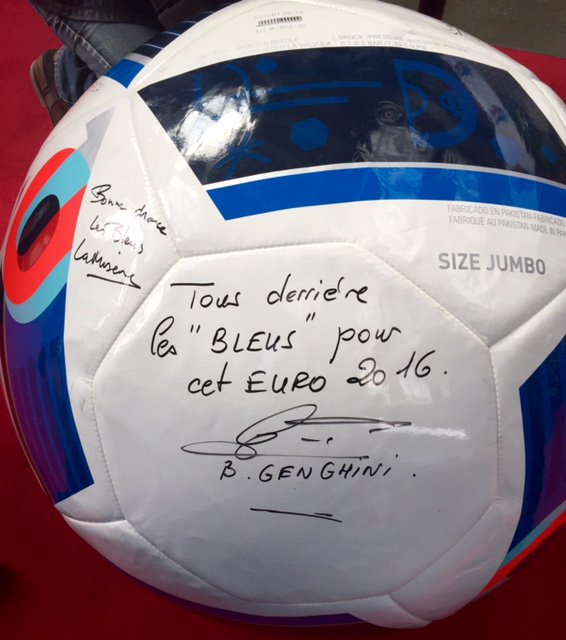 SIZE JUMBO
FABRICADO EN PAKISTAN-FABRICADO
FABRIQUÉ AU PAKISTAN-MADE IN PAK
Bonne chance
Les Bleus
Tous derrière
les "BLEUS" pour
cet EURO 2016.
B. GENGHINI.